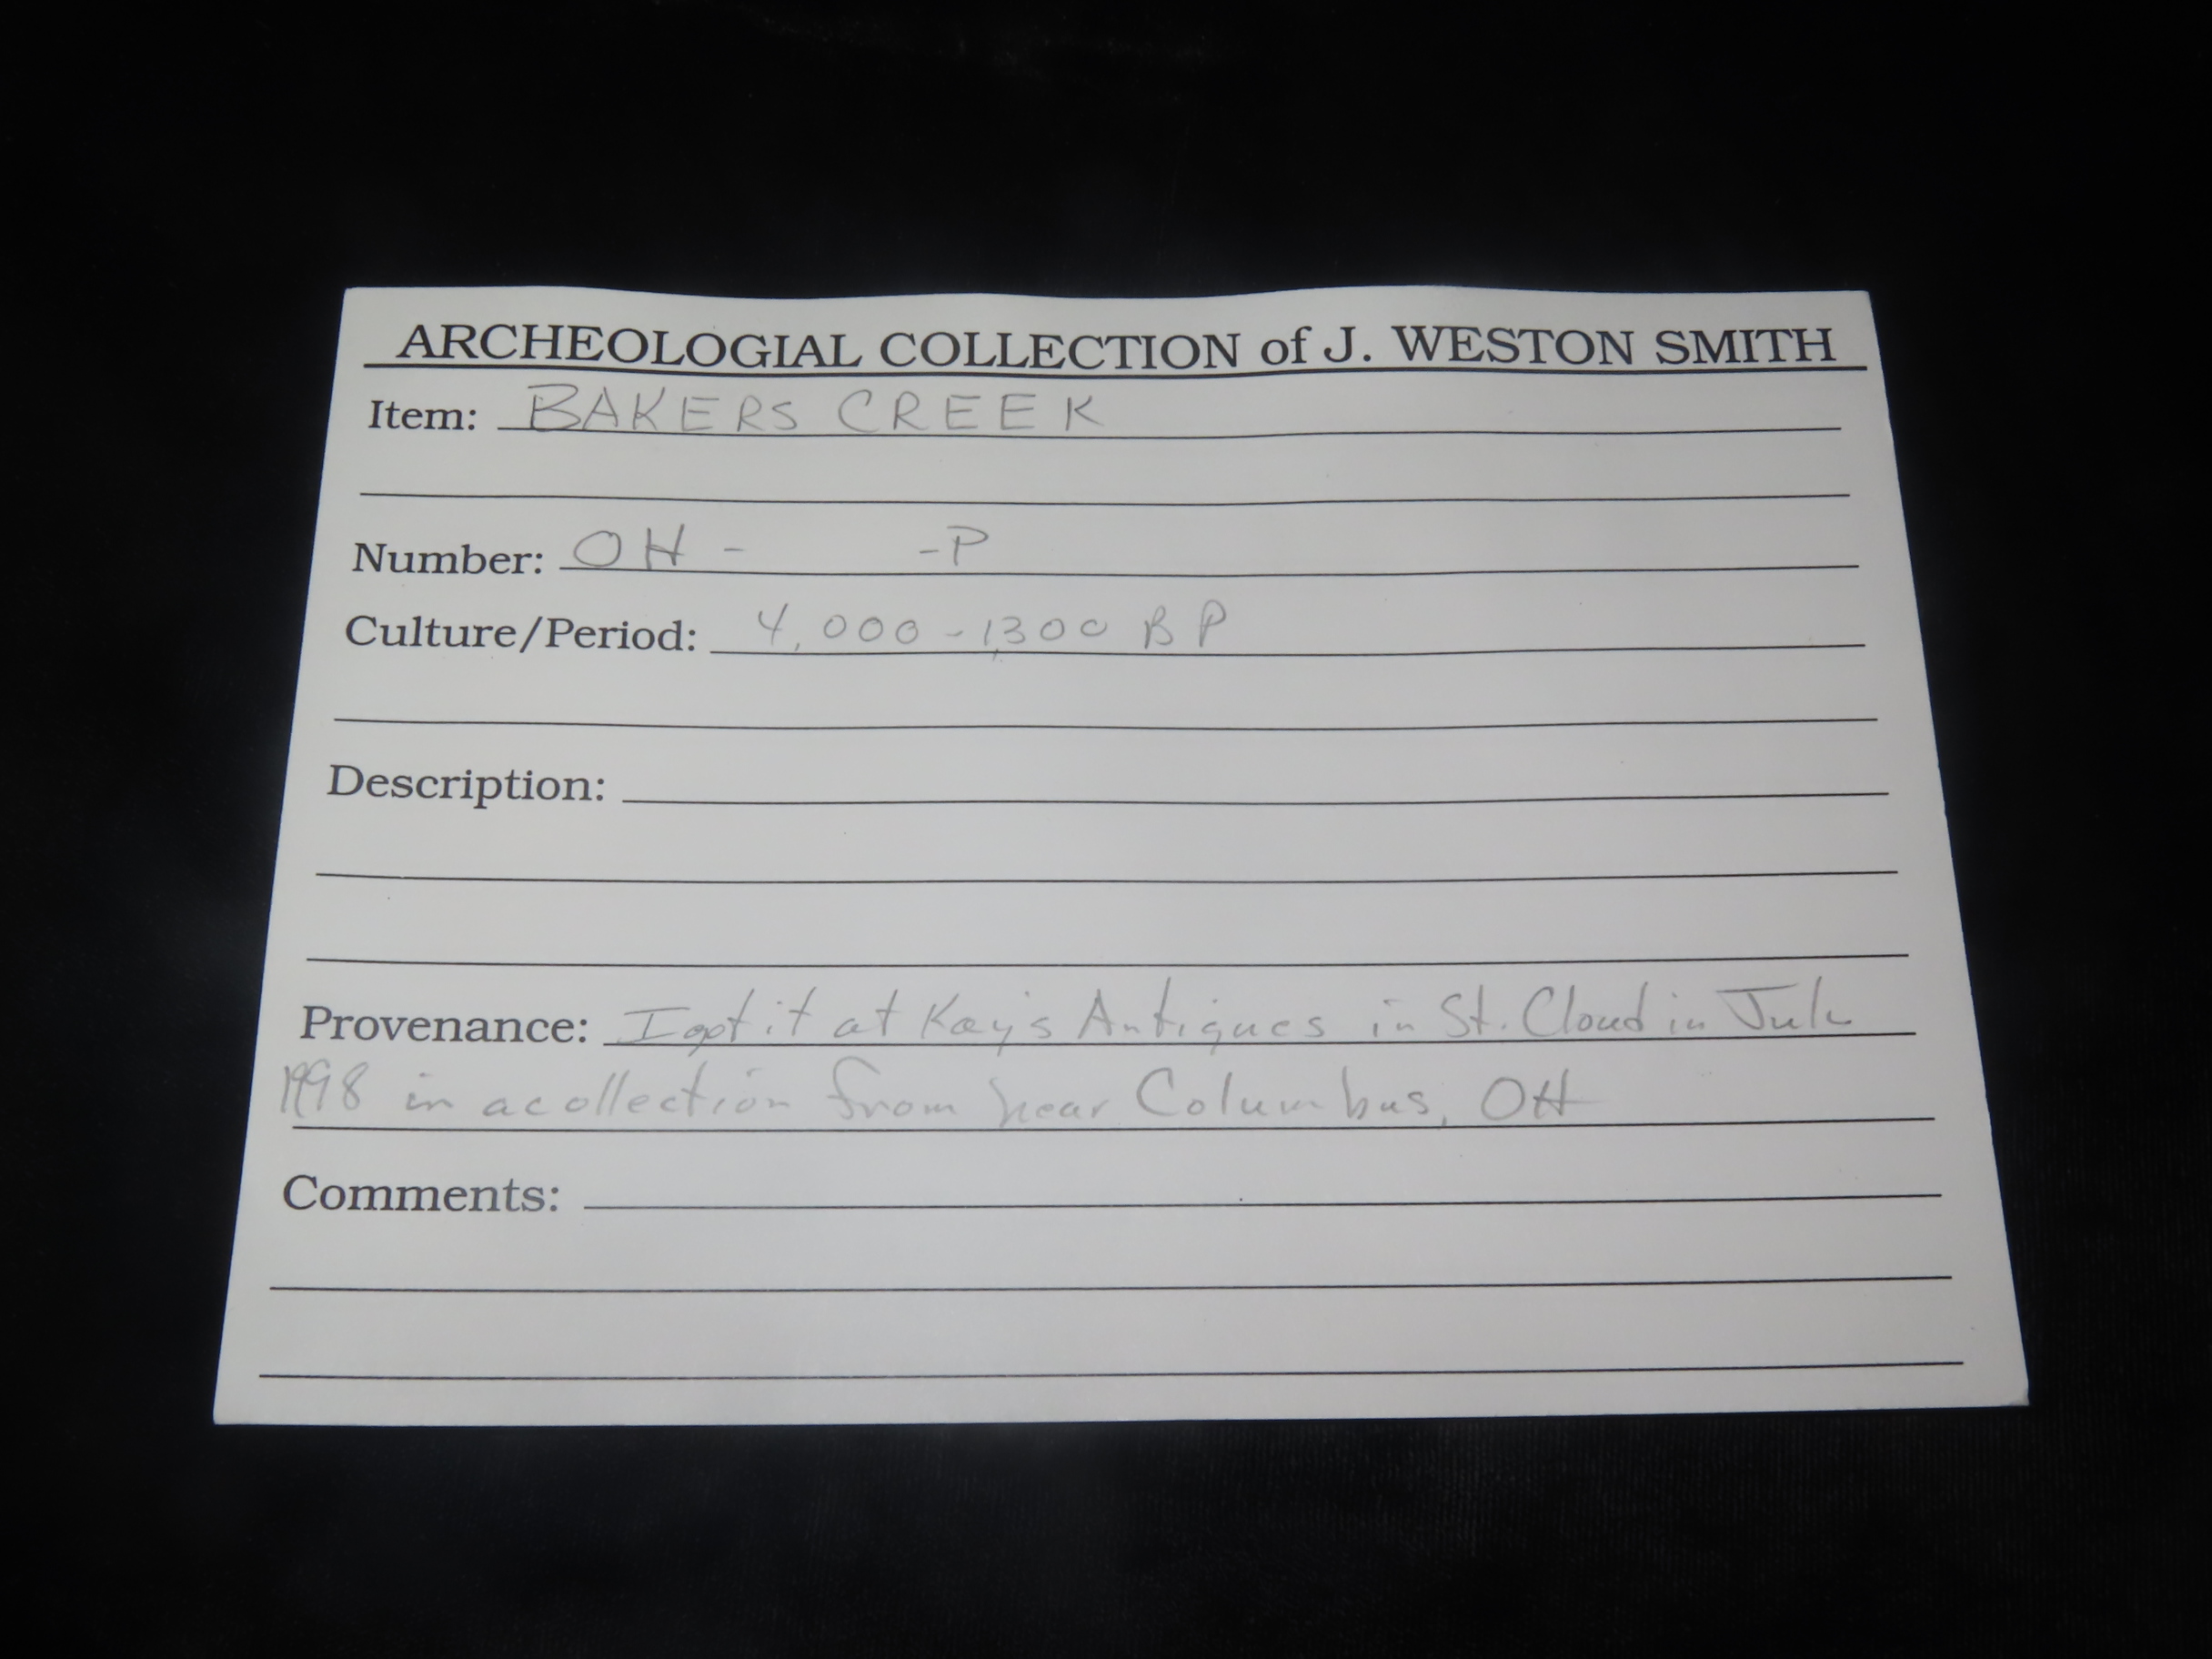 ARCHEOLOGIAL COLLECTION of J. WESTON SMITH
Item: BAKERS CREEK
Number: OH - -P
Culture/Period: 4,000 - 1,300 BP
Description:
Provenance: I got it at Kay's Antiques in St. Cloud in July
1998 in a collection from near Columbus, OH
Comments: